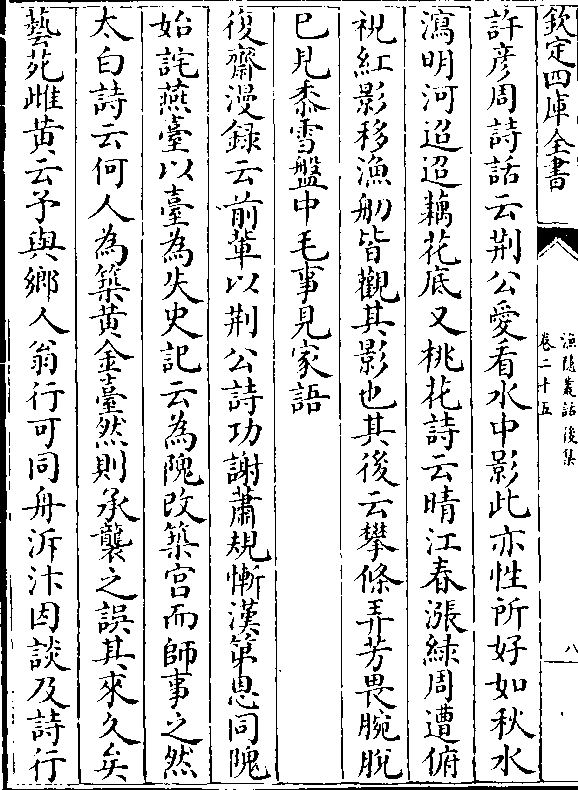 欽定四庫全書
漁隠叢話後集
卷二十五
八
許彦周詩話云荆公愛看水中影此亦性所好如秋水
瀉明河迢迢藕花底又桃花詩云晴江春漲緑周遭俯
視紅影移漁舠皆觀其影也其後云攀條弄芳畏腕脫
已見黍雪盤中毛事見家語
復齋漫録云前輩以荆公詩功謝蕭規慚漢第恩同隗
始詫燕臺以臺為失史記云為隗改築宫而師事之然
太白詩云何人為築黄金臺然則承襲之誤其來久矣
藝苑雌黄云予與鄉人翁行可同舟泝汴因談及詩行